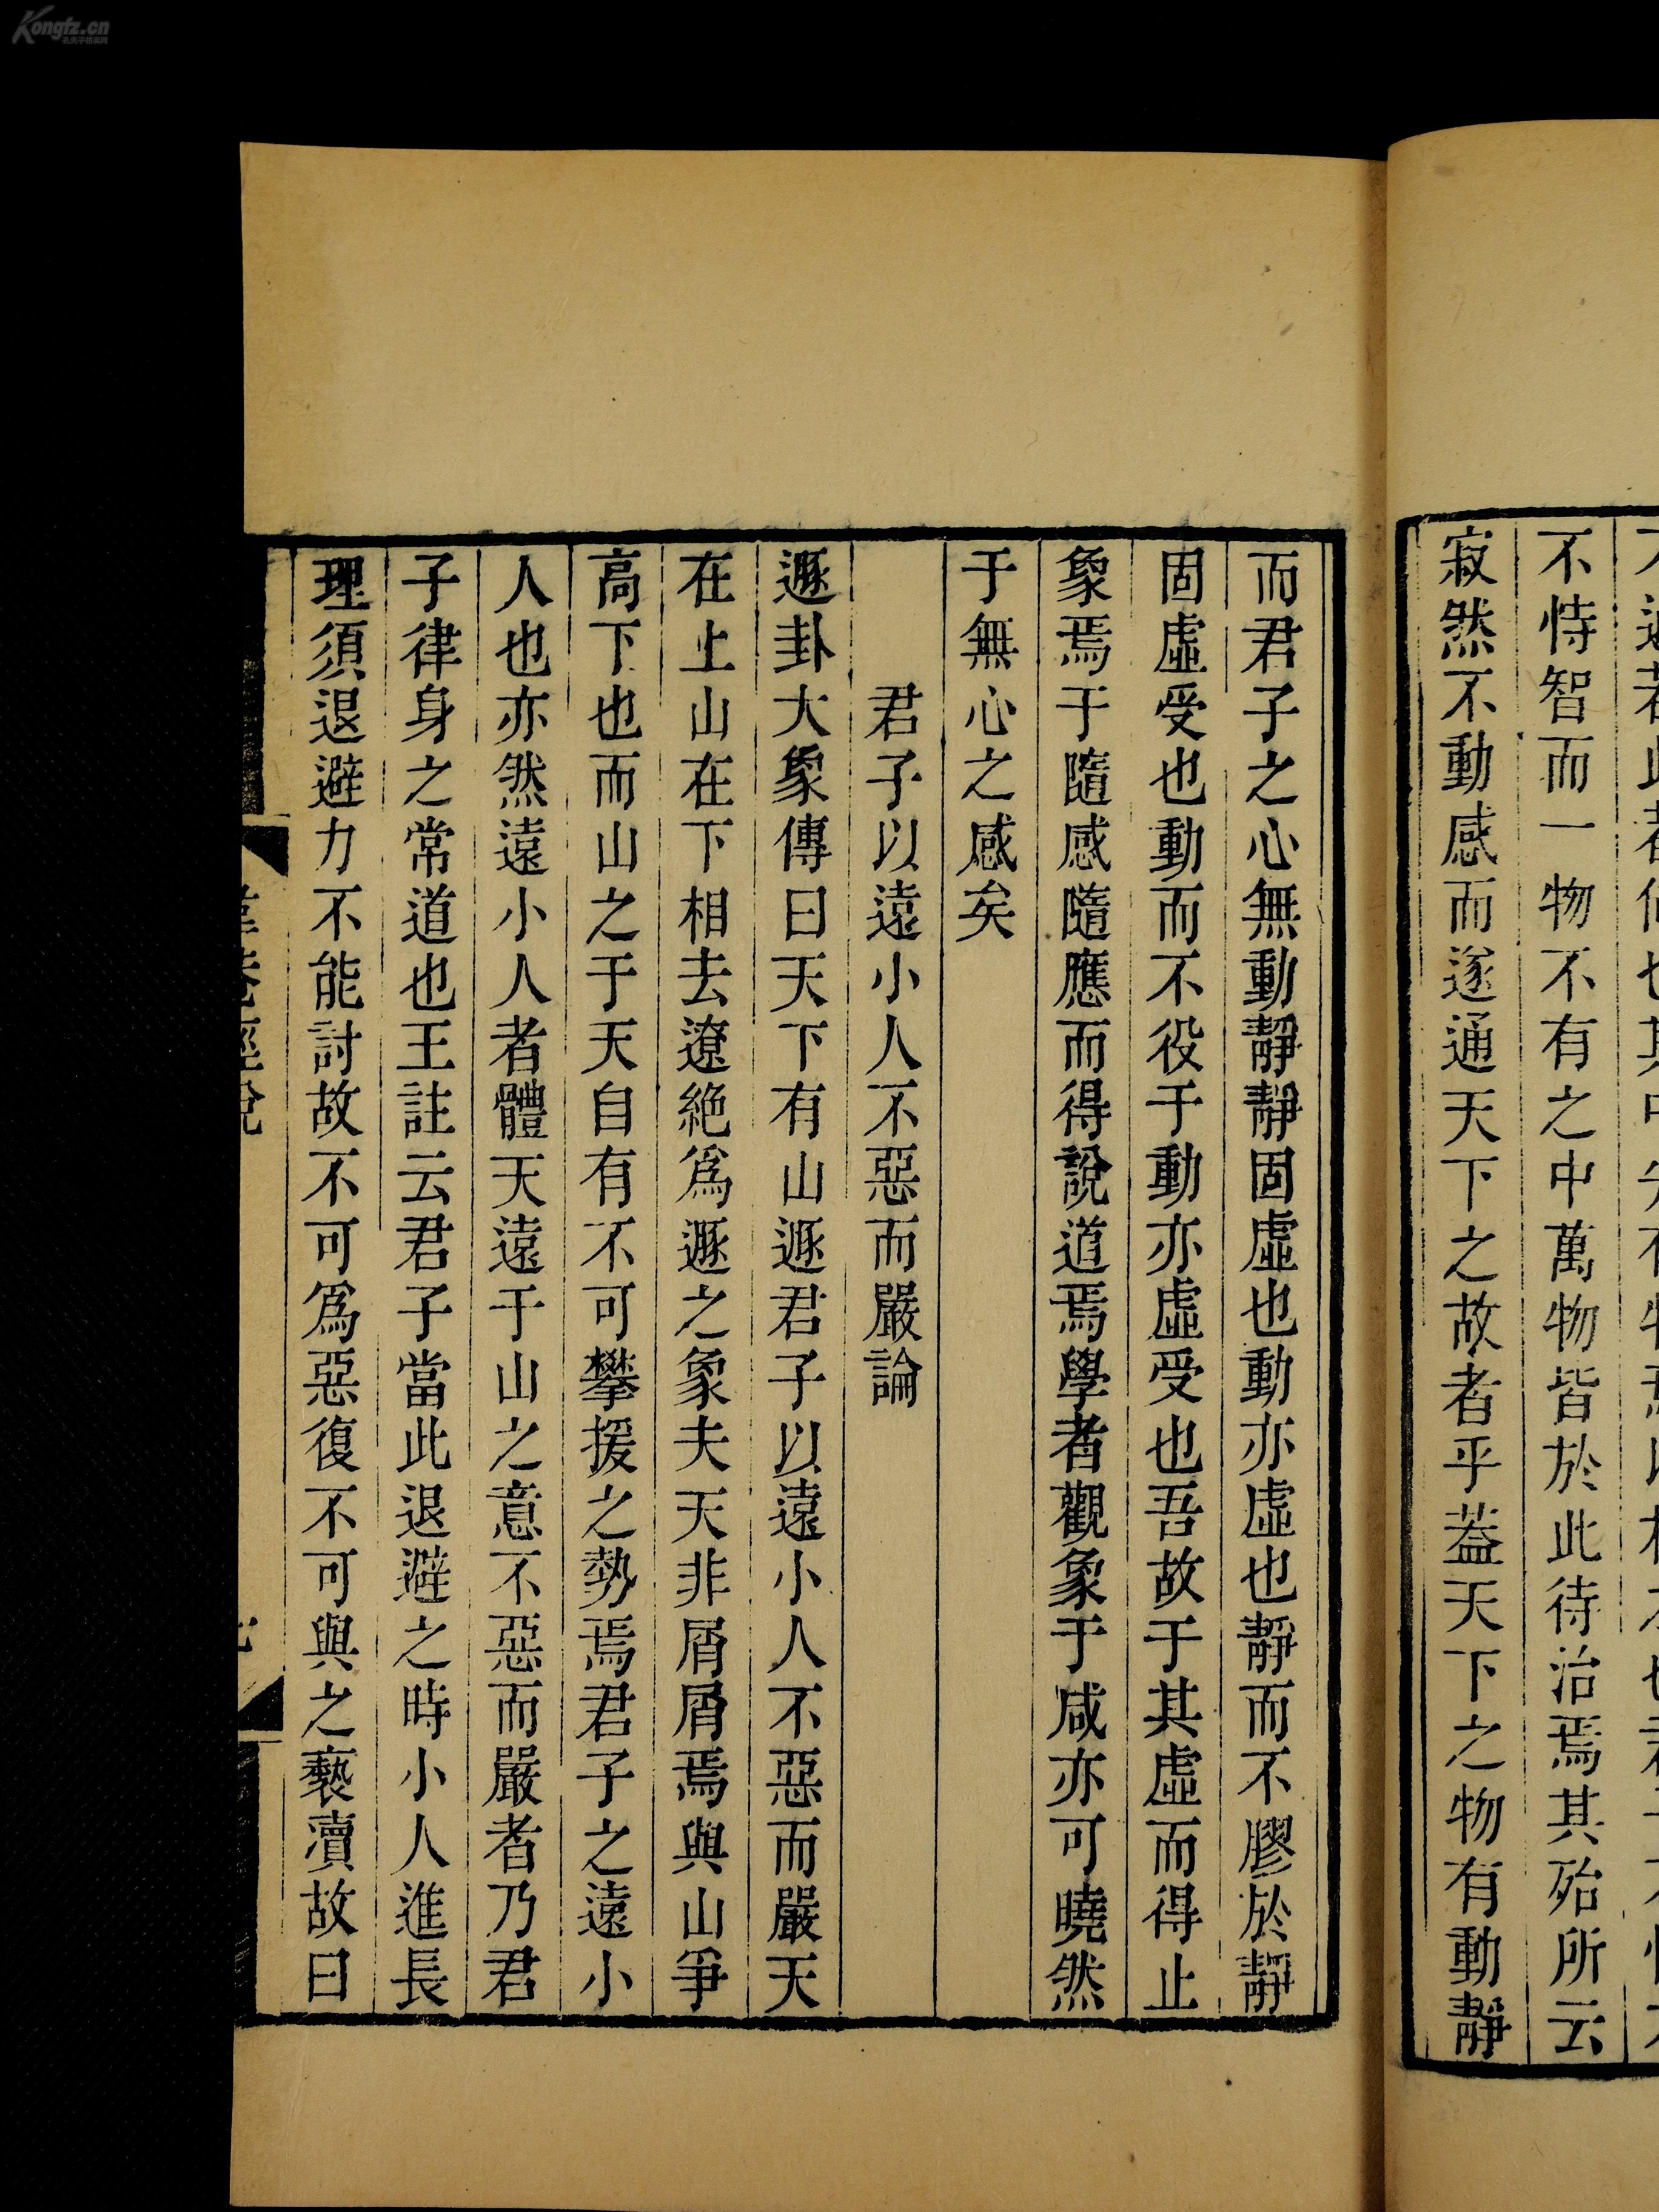 不恃智而一物不有之中萬物皆於此待治焉其殆所云
寂然不動感而遂通天下之故者乎蓋天下之物有動靜
而君子之心無動靜靜固虛也動亦虛也靜而不膠於靜
固虛受也動而不役于動亦虛受也吾故于其虛而得止
象焉于隨感隨應而得說道焉學者觀象于咸亦可曉然
于無心之感矣
君子以遠小人不惡而嚴論
遯卦大象傳曰天下有山遯君子以遠小人不惡而嚴天
在上山在下相去遼絶爲遯之象夫天非屑屑焉與山爭
高下也而山之于天自有不可攀援之勢焉君子之遠小
人也亦然遠小人者體天遠于山之意不惡而嚴者乃君
子律身之常道也王註云君子當此退避之時小人進長
理須退避力不能討故不可爲惡復不可與之褻瀆故曰
Kongfz.cn